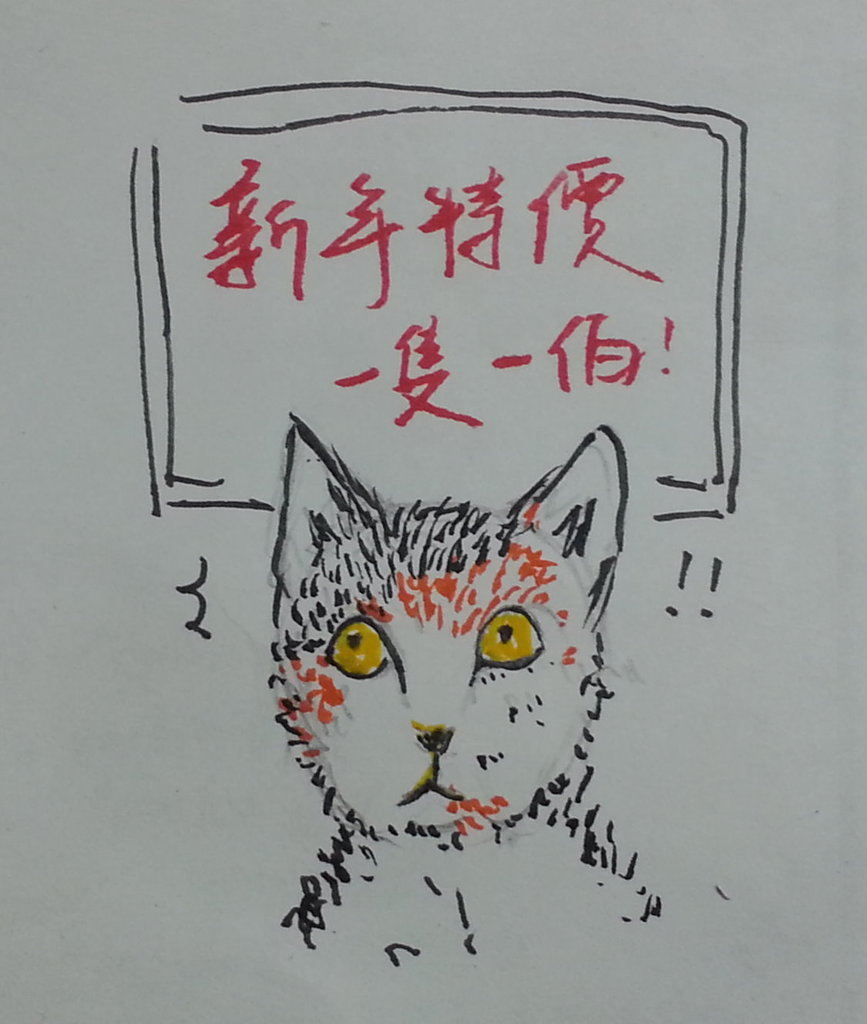 新年特價
一隻一佰!
!!